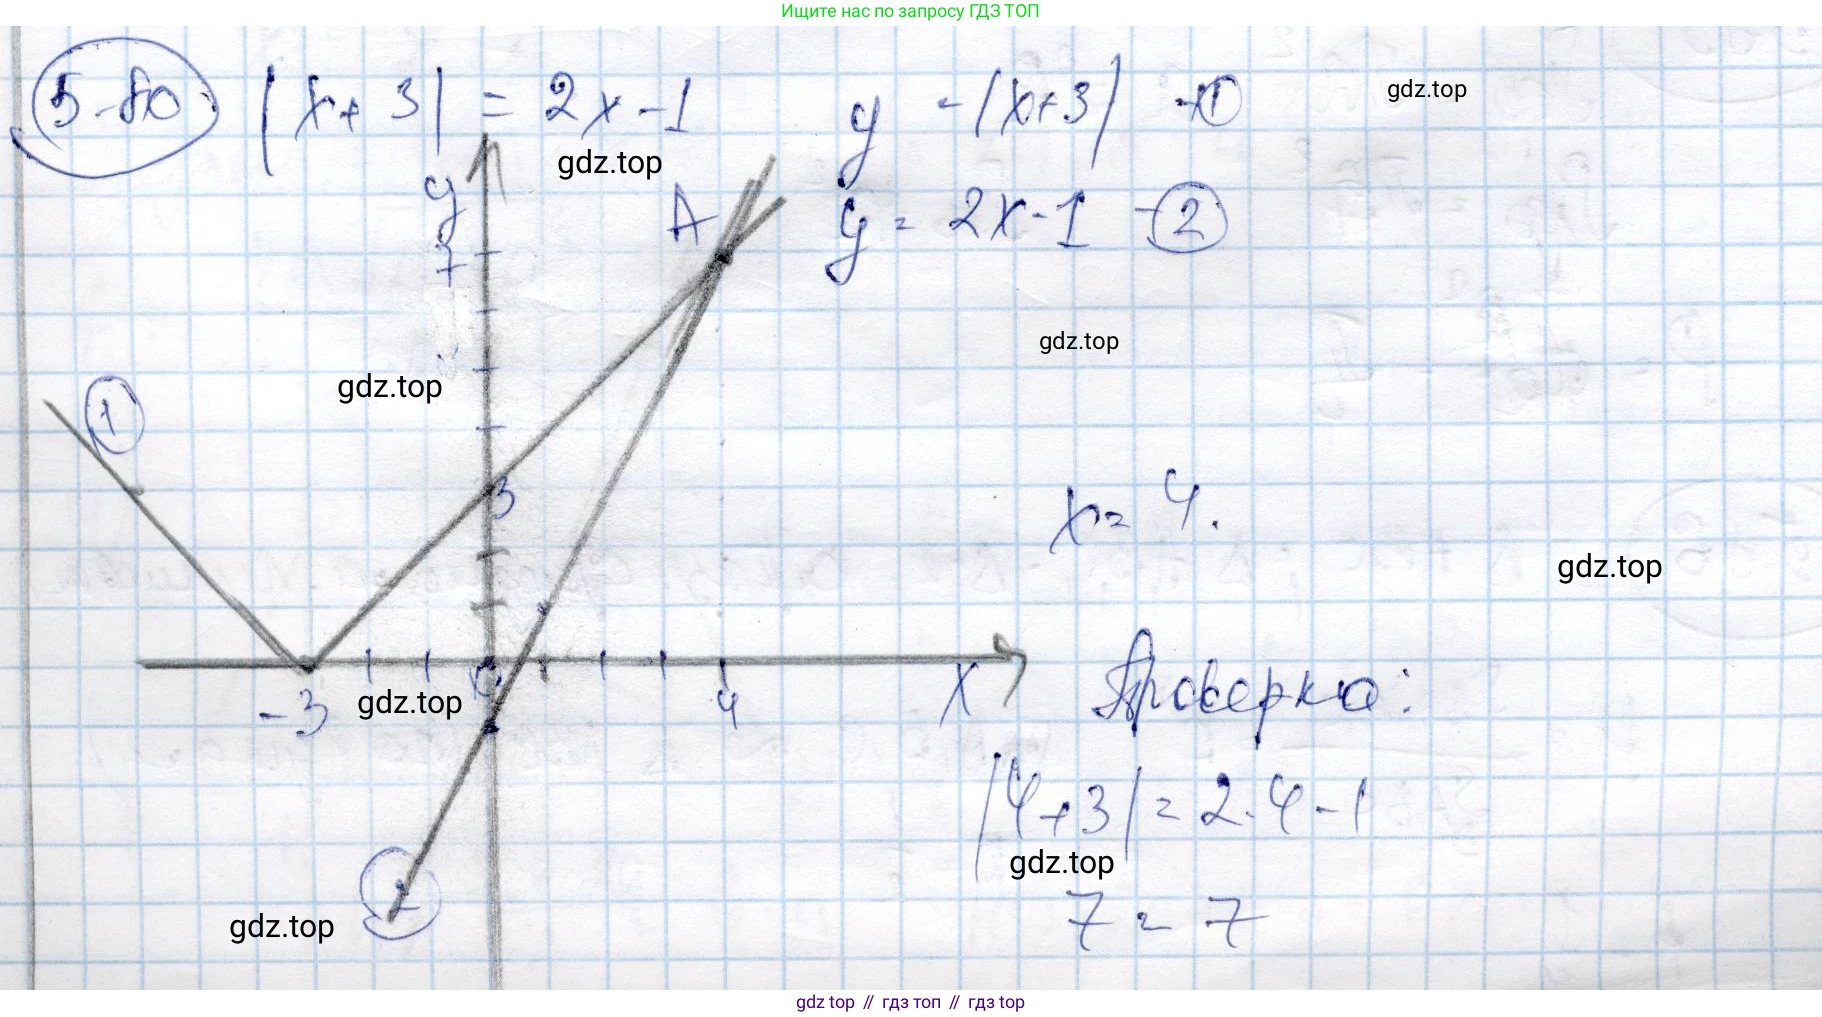 Ищите нас по запросу ГДЗ ТОП
5-80 |x+3| = 2x-1 y = |x+3| - 1
gdz.top
gdz.top
y A y = 2x-1 - 2
7
gdz.top
gdz.top
1
3
x = 4.
gdz.top
0 x
-3 gdz.top 4
Проверка:
|4+3| = 2·4-1
gdz.top
2
gdz.top
7 = 7
gdz top // гдз топ // gdz top